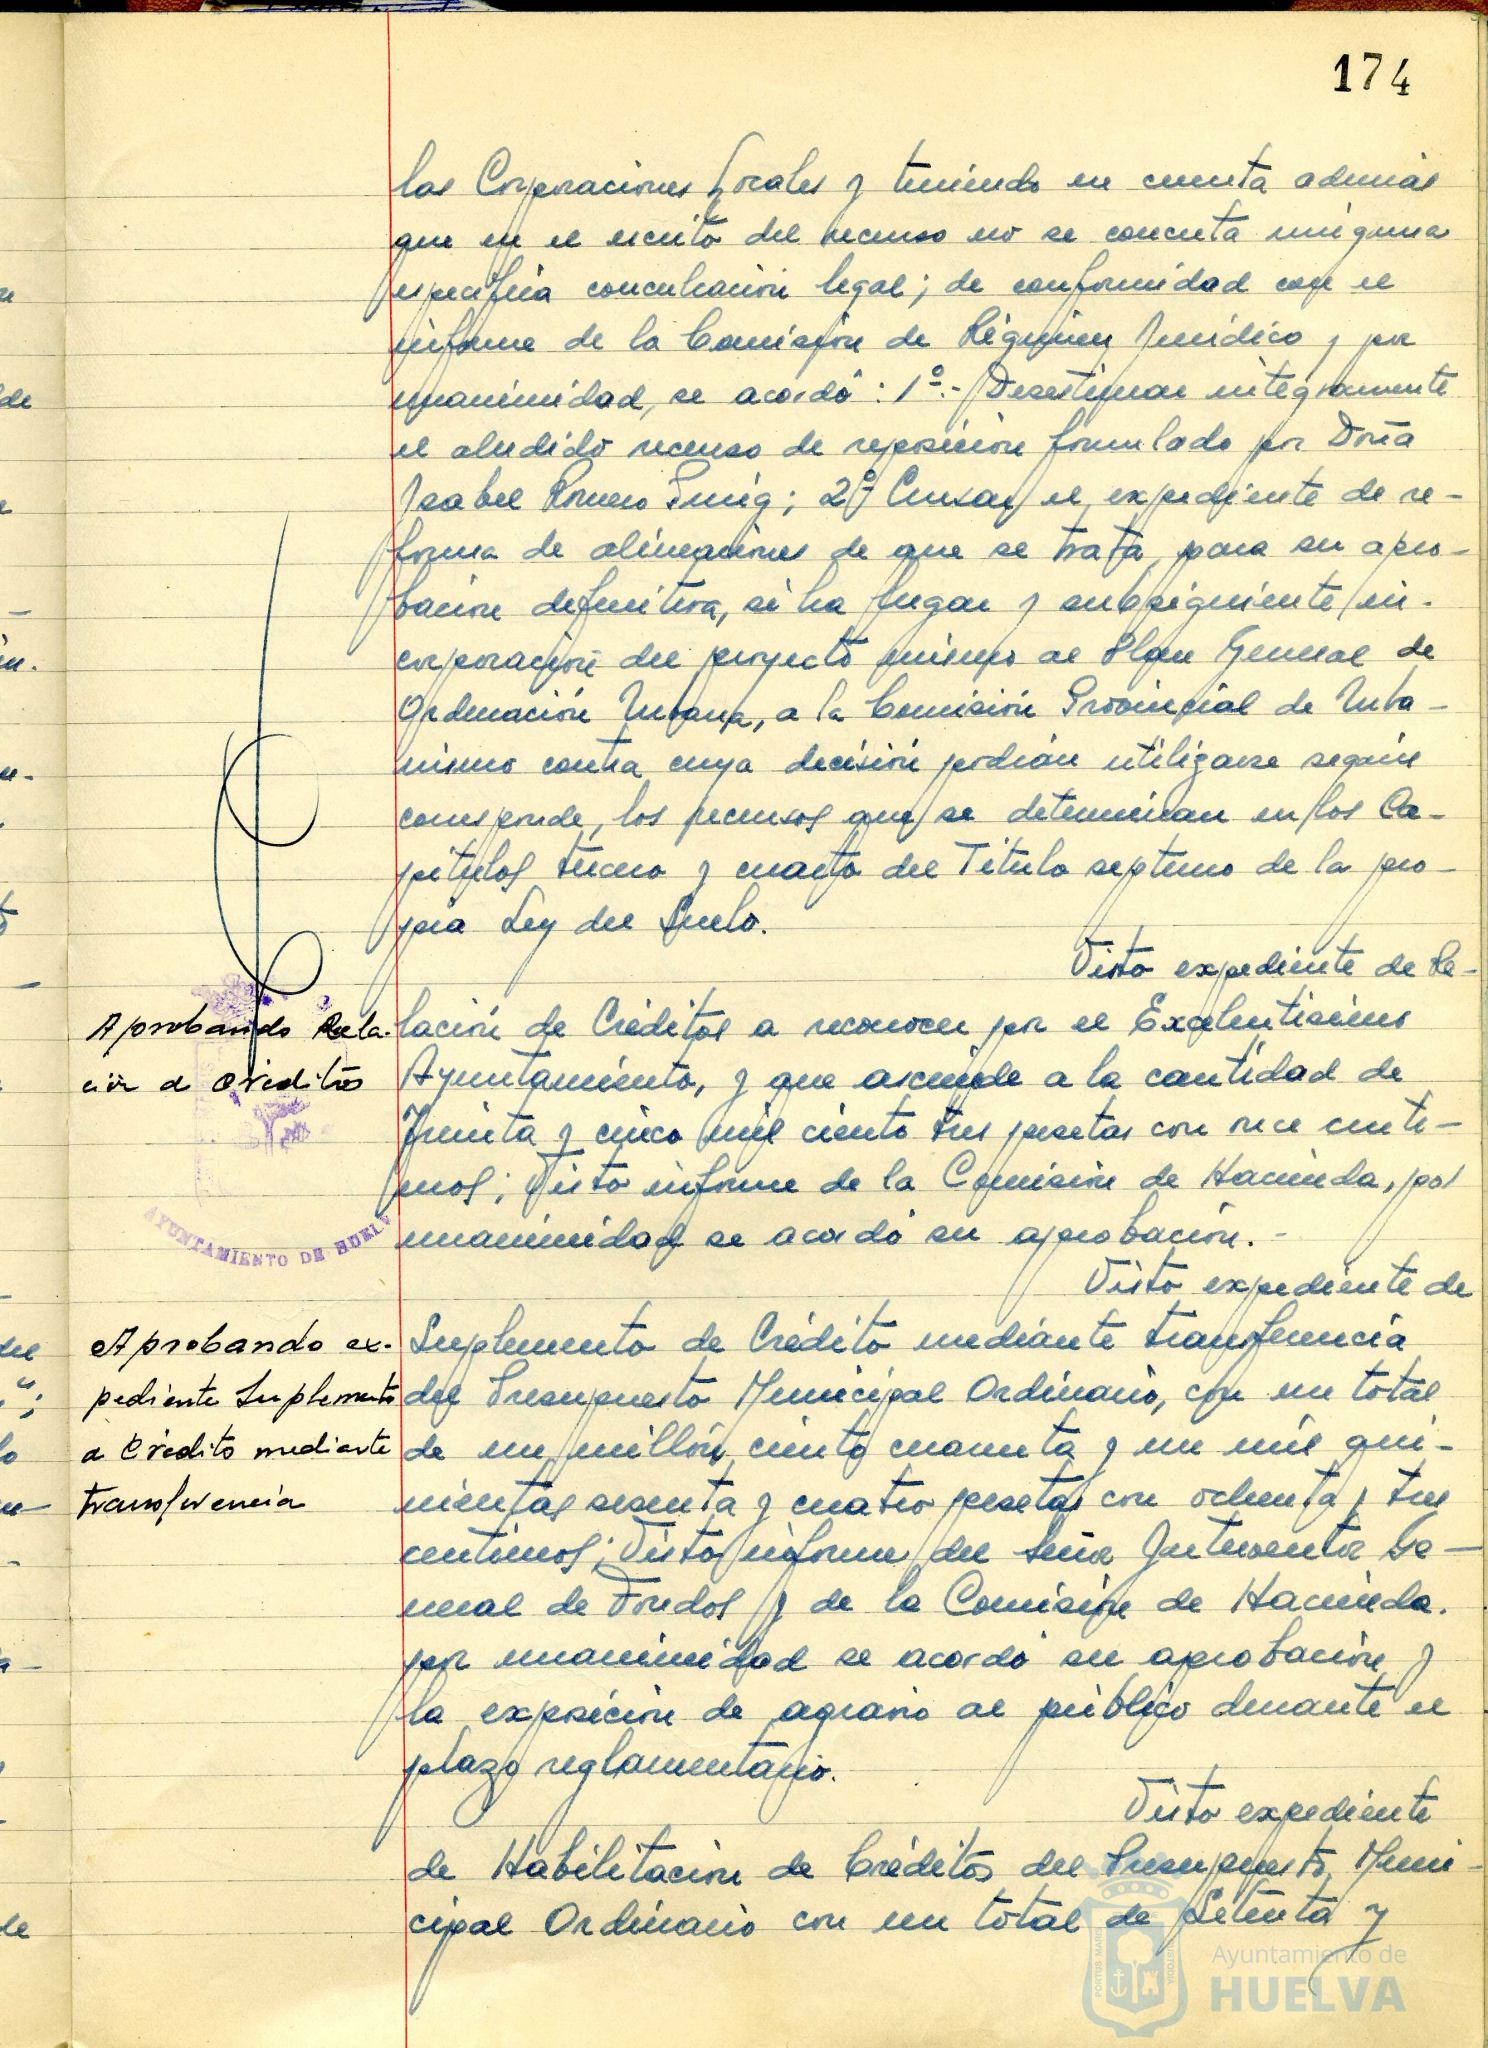 174
las Corporaciones Locales y teniendo en cuenta además
que en el escrito del recurso no se concreta ninguna
específica conculcación legal; de conformidad con el
informe de la Comisión de Régimen Jurídico y por
unanimidad, se acordó: 1º.- Desestimar integramente
el aludido recurso de reposición formulado por Doña
Isabel Romero Puig; 2º Cursar el expediente de re-
forma de alineaciones de que se trata, para su apro-
bación definitiva, si ha lugar y subsiguiente in-
corporación del proyecto mismo al Plan General de
Ordenación Urbana, a la Comisión Provincial de Urba-
nismo contra cuya decisión podrán utilizarse según
corresponde, los recursos que se determinan en los Ca-
pítulos tercero y cuarto del Título septimo de la pro-
pia Ley del Suelo.
Visto expediente de Re-
Aprobando Rela-
ción de créditos
lación de Créditos a reconocer por el Excelentísimo
Ayuntamiento, y que asciende a la cantidad de
Treinta y cinco mil ciento tres pesetas con once cénti-
mos; Visto informe de la Comisión de Hacienda, por
unanimidad se acordó su aprobación.-
AYUNTAMIENTO DE HUELV
Visto expediente de
Aprobando ex-
pediente Suplemento
de Crédito mediante
transferencia
Suplemento de Crédito mediante transferencia
del Presupuesto Municipal Ordinario, con un total
de un millón ciento cuarenta y un mil qui-
nientas sesenta y cuatro pesetas con ochenta y tres
centimos; Visto informe del Señor Interventor Ge-
neral de Fondos y de la Comisión de Hacienda.
por unanimidad se acordó su aprobación y
la exposición de agravio al público durante el
plazo reglamentario.
Visto expediente
de Habilitación de Créditos del Presupuesto Muni-
cipal Ordinario con un total de Setenta y
Ayuntamiento de
HUELVA